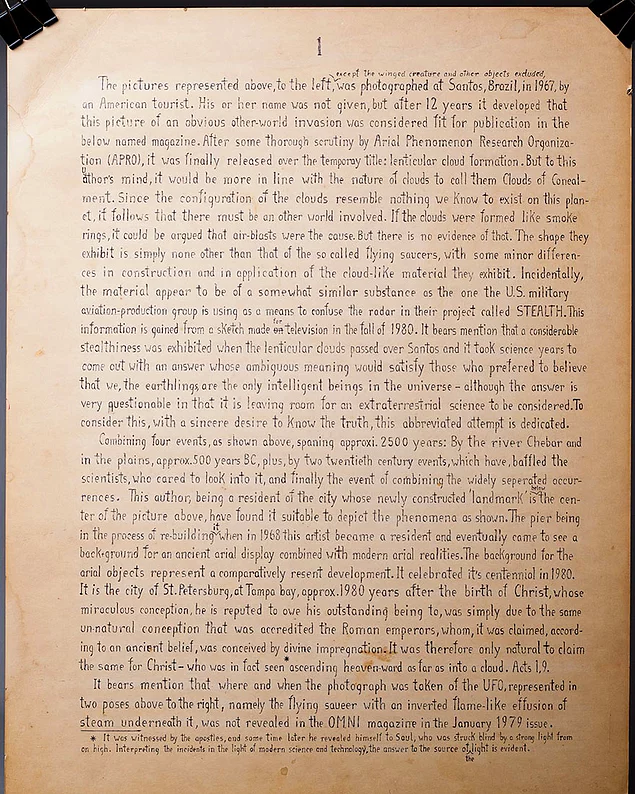 1
except the winged creature and other objects excluded,
The pictures represented above, to the left, was photographed at Santos, Brazil, in 1967, by
an American tourist. His or her name was not given, but after 12 years it developed that
this picture of an obvious other-world invasion was considered fit for publication in the
below named magazine. After some thorough scrutiny by Arial Phenomenon Research Organiza-
tion (APRO), it was finally released over the temporay title: lenticular cloud formation. But to this
author's mind, it would be more in line with the nature of clouds to call them Clouds of Conceal-
ment. Since the configuration of the clouds resemble nothing we know to exist on this plan-
et, it follows that there must be an other world involved. If the clouds were formed like smoke
rings, it could be argued that air-blasts were the cause. But there is no evidence of that. The shape they
exhibit is simply none other than that of the so called flying saucers, with some minor differen-
ces in construction and in application of the cloud-like material they exhibit. Incidentally,
the material appear to be of a somewhat similar substance as the one the U.S. military
aviation-production group is using as a means to confuse the radar in their project called STEALTH. This
information is gained from a sketch made for television in the fall of 1980. It bears mention that a considerable
stealthiness was exhibited when the lenticular clouds passed over Santos and it took science years to
come out with an answer whose ambiguous meaning would satisfy those who preferred to believe
that we, the earthlings, are the only intelligent beings in the universe – although the answer is
very questionable in that it is leaving room for an extraterrestrial science to be considered. To
consider this, with a sincere desire to know the truth, this abbreviated attempt is dedicated.
Combining four events, as shown above, spaning approxi. 2500 years: By the river Chebar and
in the plains, approx. 500 years BC, plus, by two twentieth century events, which have, baffled the
scientists, who cared to look into it, and finally the event of combining the widely seperated occur-
rences. This author, being a resident of the city whose newly constructed 'landmark' is below the cen-
ter of the picture above, have found it suitable to depict the phenomena as shown. The pier being
in the process of re-building it when in 1968 this artist became a resident and eventually came to see a
back-ground for an ancient arial display combined with modern arial realities. The background for the
arial objects represent a comparatively resent development. It celebrated it's centennial in 1980.
It is the city of St. Petersburg, at Tampa bay, approx. 1980 years after the birth of Christ, whose
miraculous conception, he is reputed to owe his outstanding being to, was simply due to the same
un-natural conception that was accredited the Roman emperors, whom, it was claimed, accord-
ing to an ancient belief, was conceived by divine impregnation. It was therefore only natural to claim
the same for Christ – who was in fact seen *ascending heaven-ward as far as into a cloud. Acts 1,9.
It bears mention that where and when the photograph was taken of the UFO, represented in
two poses above to the right, namely the flying saucer with an inverted flame-like effusion of
steam underneath it, was not revealed in the OMNI magazine in the January 1979 issue.
* It was witnessed by the apostles, and some time later he revealed himself to Saul, who was struck blind by a strong light from
on high. Interpreting the incidents in the light of modern science and technology, the answer to the source of the light is evident.